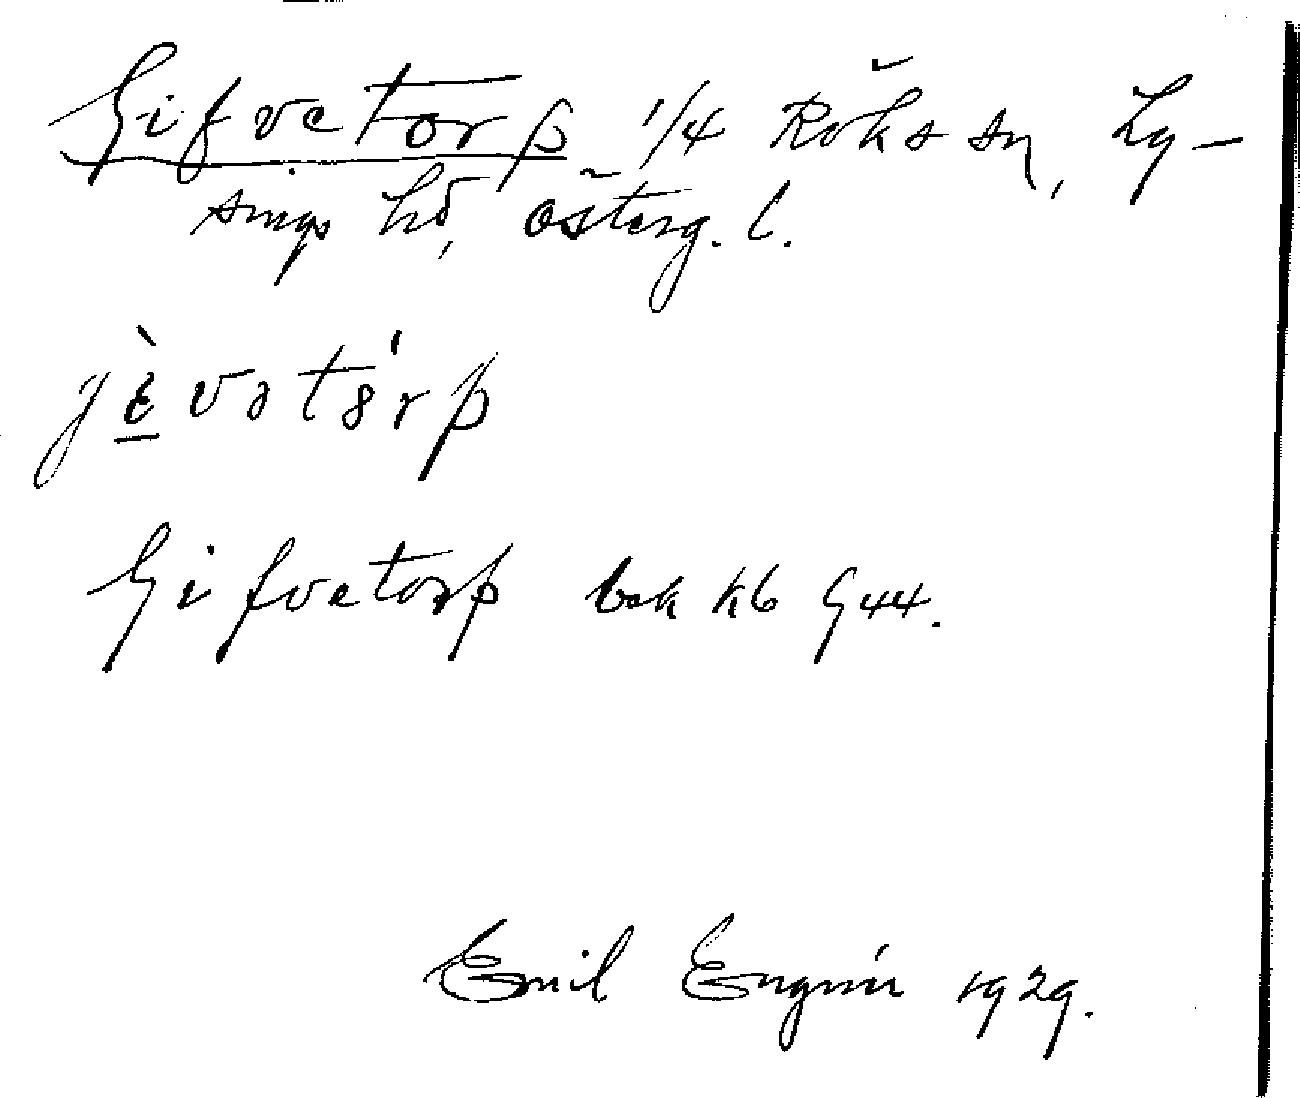 Gifvetorp 1/4 Röks sn, Ly-
sings hd, Österg. l.
jè̱vətśrp
Gifvetorp bok kb G44.
Emil Engmér 1929.